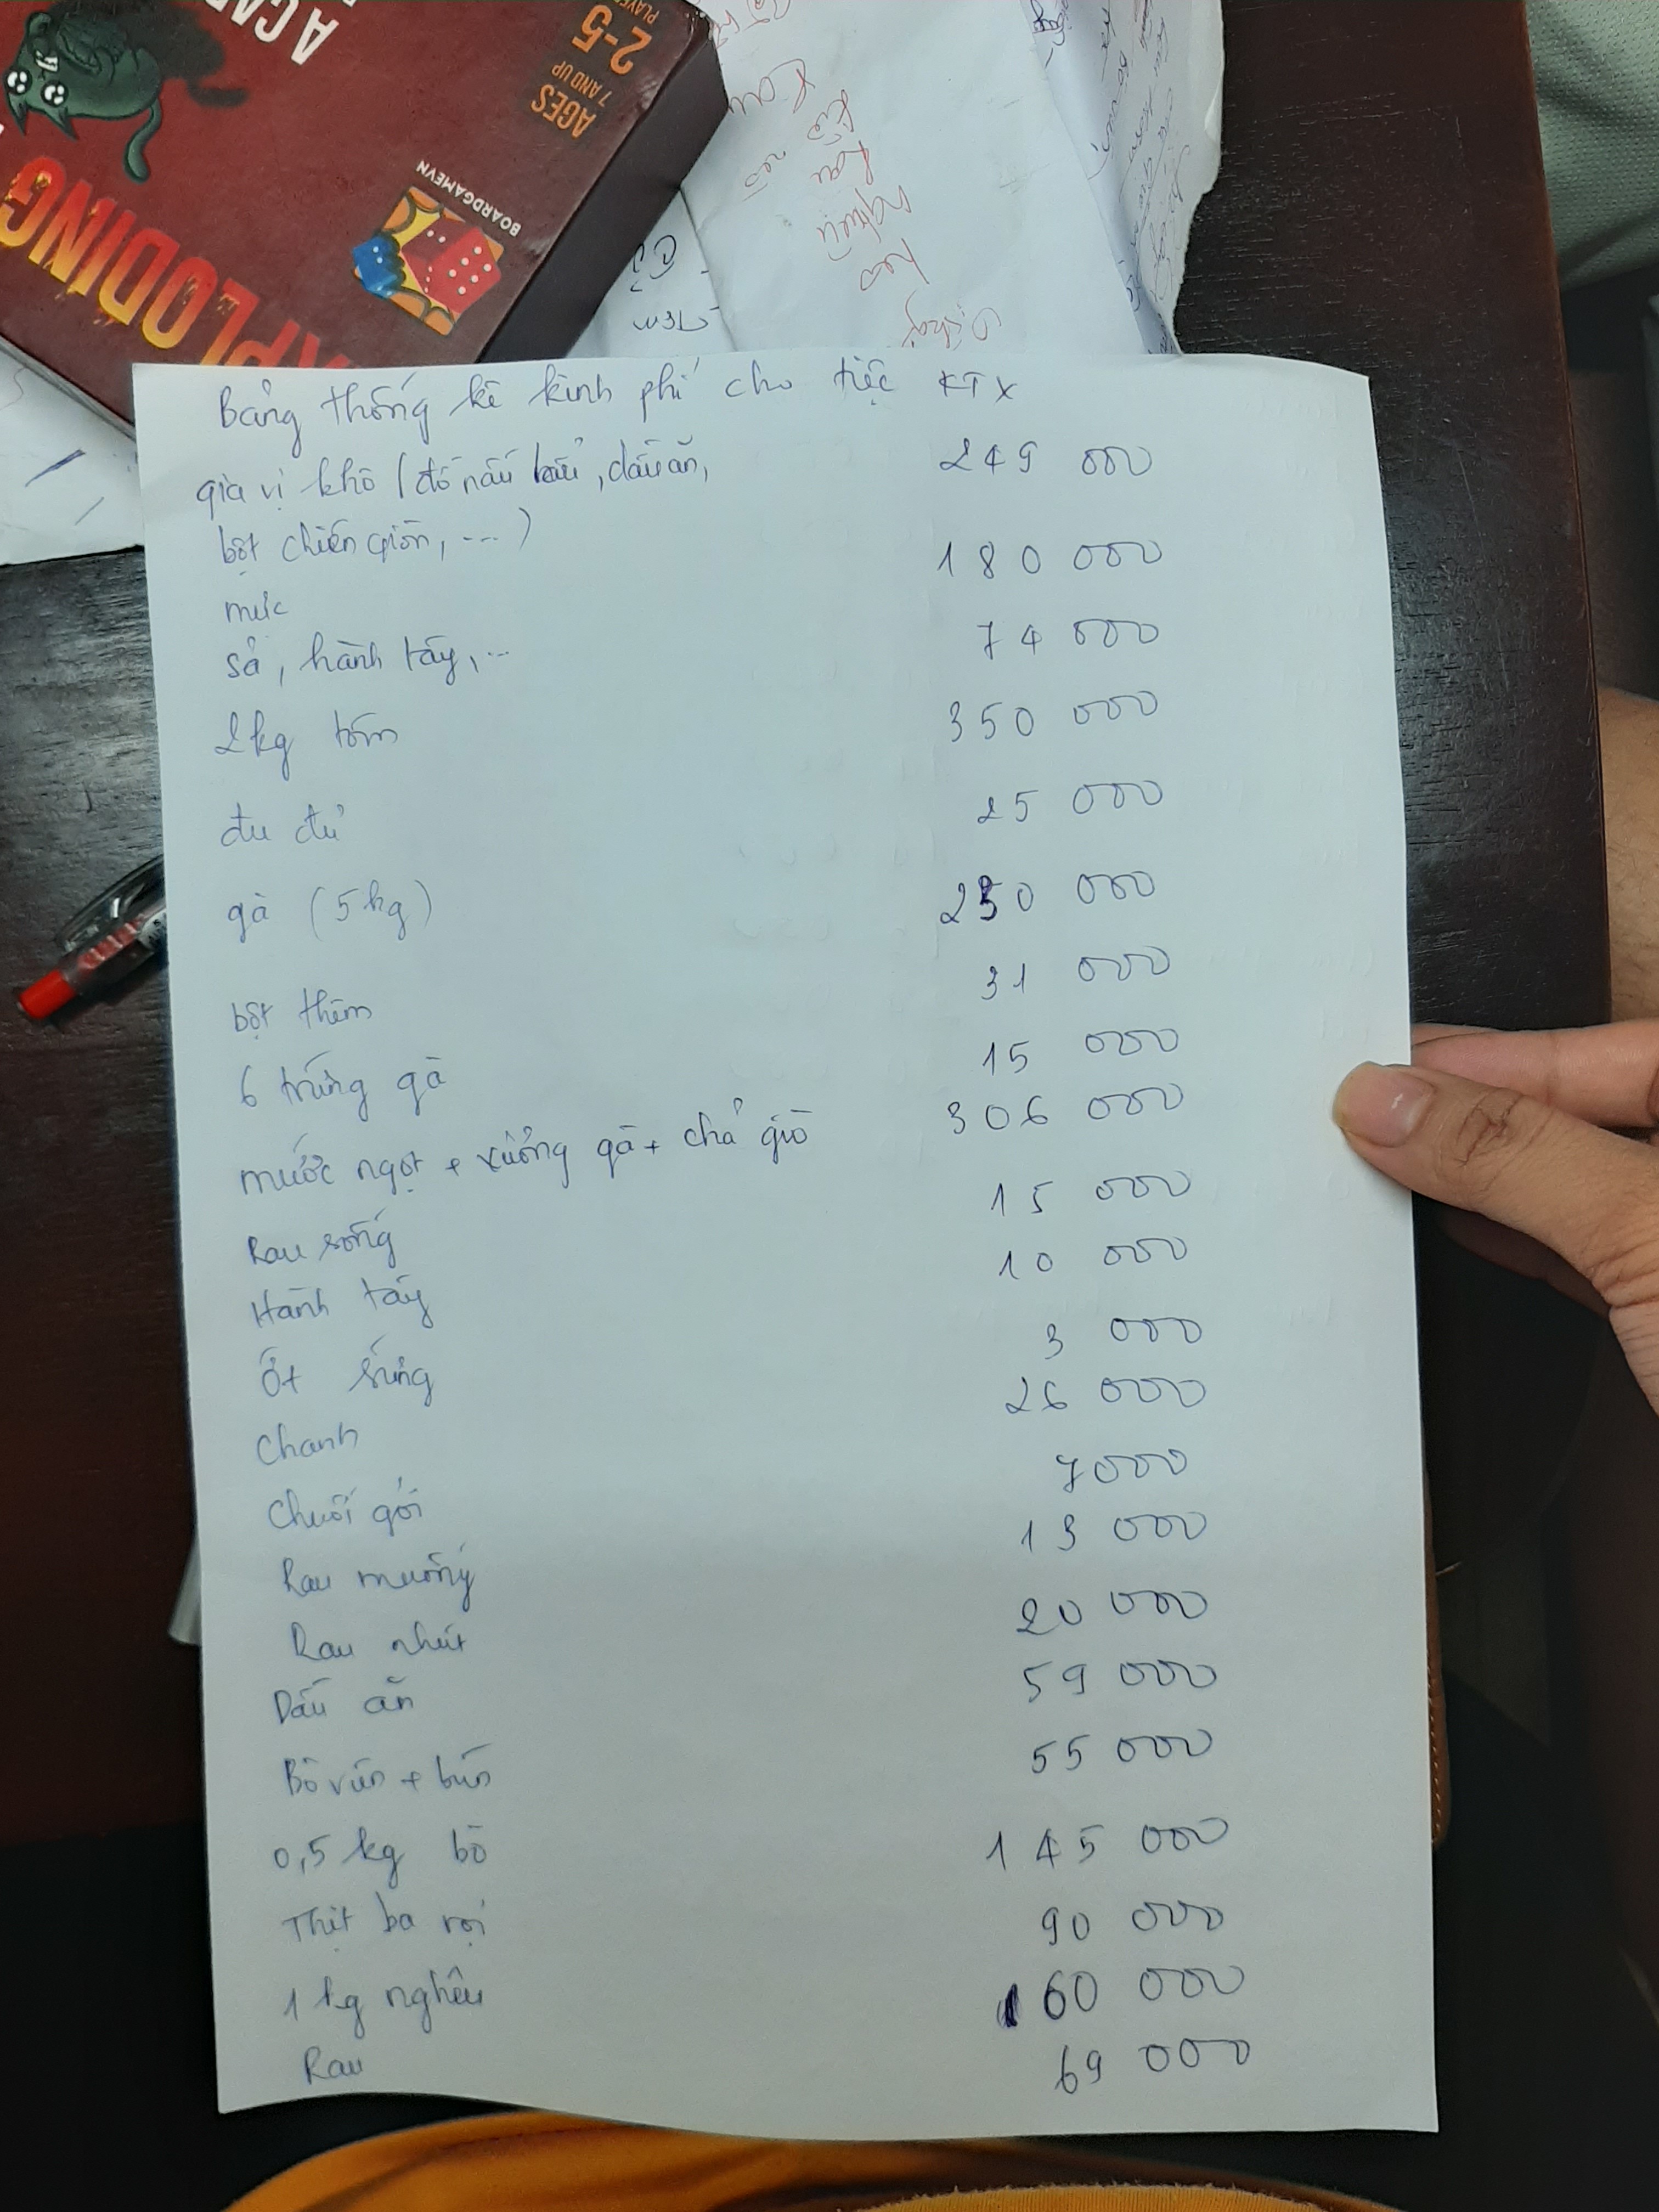 A CA
AGES
7 AND UP
2-5
PLAYE
BOARDGAMEVN
XPLODING
Rau
Rau
nghêu
heo
Bảng thống kê kinh phí cho tiệc KTX
gia vị khô (đồ nấu lẩu, dầu ăn, 249 000
bột chiên giòn, ...)
mực 180 000
sả, hành tây, ... 74 000
2kg tôm 350 000
đu đủ 25 000
gà (5kg) 250 000
bột thêm 31 000
6 trứng gà 15 000
nước ngọt + xương gà + chả giò 306 000
Rau sống 15 000
Hành tây 10 000
Ớt sừng 3 000
Chanh 26 000
Chuối gỏi 7000
Rau muống 13 000
Rau nhút 20 000
Dầu ăn 59 000
Bò viên + bún 55 000
0,5 kg bò 145 000
Thịt ba rọi 90 000
1 kg nghêu 160 000
Rau 69 000